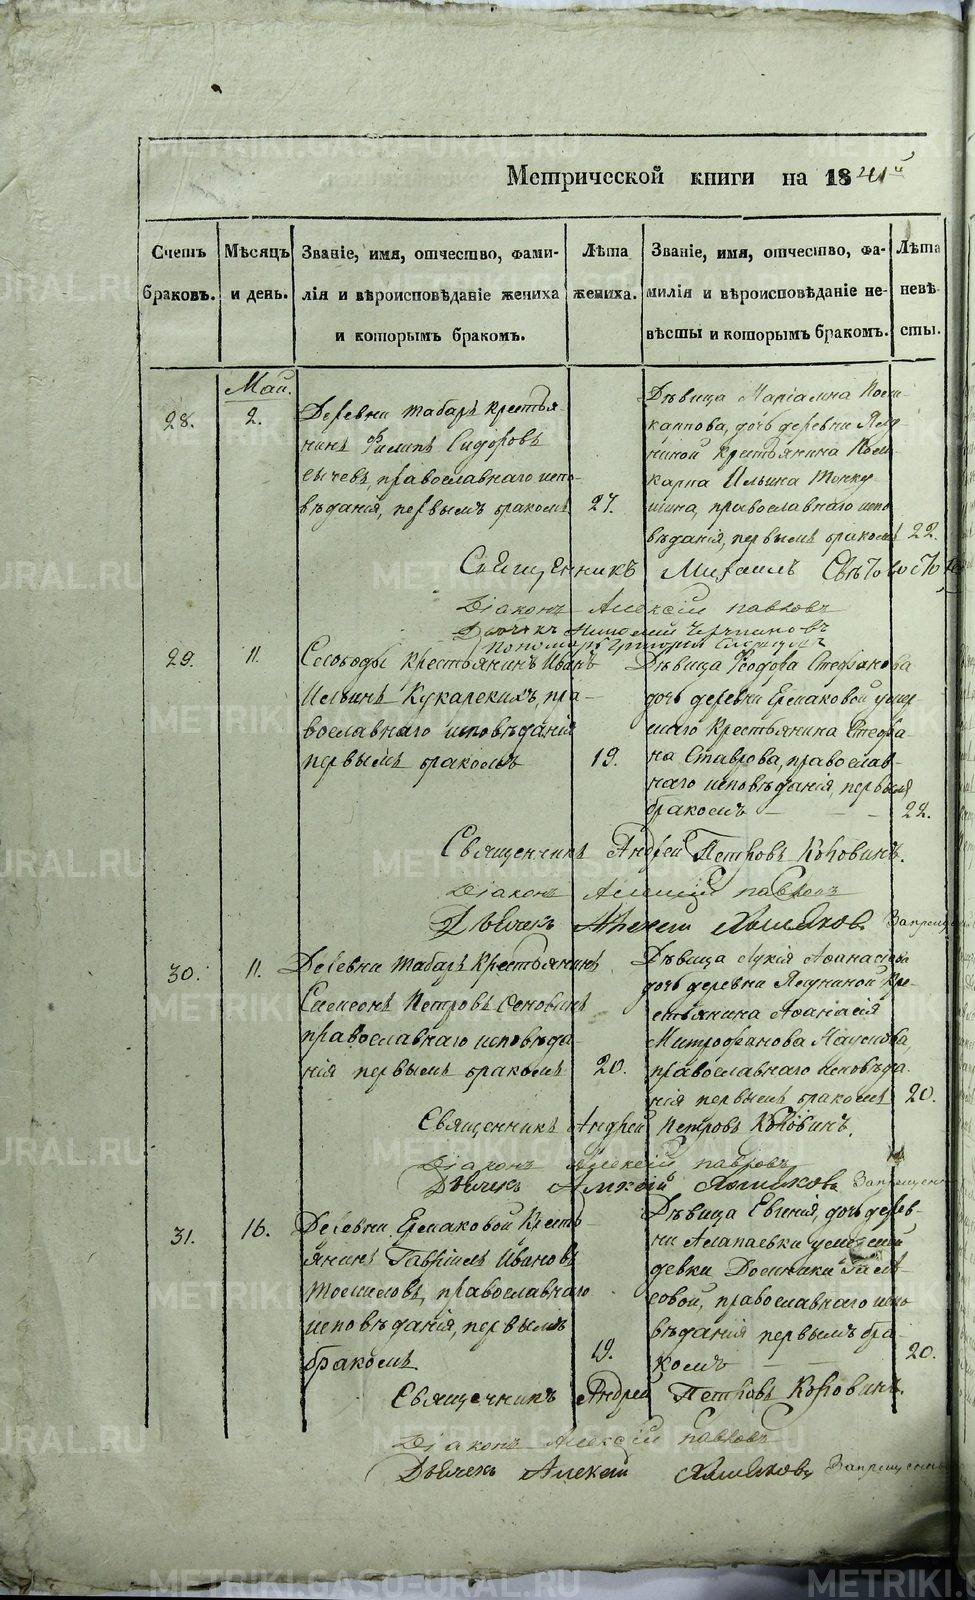 Метрической книги на 1841й
Счетъ браковъ.
Мѣсяцъ и день.
Званіе, имя, отчество, фами-
лія и вѣроисповѣданіе жениха
и которымъ бракомъ.
Лѣта жениха.
Званіе, имя, отчество, фа-
милія и вѣроисповѣданіе не-
вѣсты и которымъ бракомъ.
Лѣта невѣ
сты.
Май.
28.
2.
Деревни Табаръ крестья-
нинъ Филипъ Сидоровъ
сычевъ, православнаго испо-
вѣданія, первымъ бракомъ
27.
Дѣвица Маріамна
дочь деревни
крестьянина
карпа Ильина
шина, православнаго испо
вѣданія, первымъ бракомъ
22.
Священникъ Михаилъ
Діаконъ Алексій Павловъ
Дьячекъ
Пономарь Григорій
29.
11.
Слободы крестьянинъ Иванъ
Ильинъ Кукарскихъ, пра-
вославнаго исповѣданія
первымъ бракомъ
19.
Дѣвица Ѳеодора Стефанова
дочь деревни Ермаковой умер
шаго крестьянина Стефа-
на Ставрова, православ-
наго исповѣданія, первымъ
бракомъ
22.
Священникъ Андрей Петровъ Коровинъ.
Діаконъ Алексій Павловъ
Дьячекъ Алексей Хмыляков
30.
11.
Деревни Табаръ Крестьянинъ
Симеонъ Петровъ Основинъ
православнаго исповѣда-
нія первымъ бракомъ
20.
Дѣвица Лукія Аѳанасьева
дочь деревни кре-
стьянина Аѳанасія
Митрофанова
православнаго исповѣда-
нія первымъ бракомъ
20.
Священникъ Андрей Петровъ Коровинъ.
Діаконъ Алексій Павловъ
Дьячекъ Алексій
31.
16.
Деревни Ермаковой Кресть-
янинъ Гавріилъ Ивановъ
Томиловъ, православнаго
исповѣданія, первымъ
бракомъ.
19.
Дѣвица Евгенія, дочь дерев-
ни Алапаевки умершей
девки Домники
совой, православнаго испо
вѣданія первымъ бра-
комъ
20.
Священникъ Андрей Петровъ Коровинъ.
Діаконъ Алексій Павловъ
Дьячекъ Алексей
METRIKI.GASO-URAL.RU